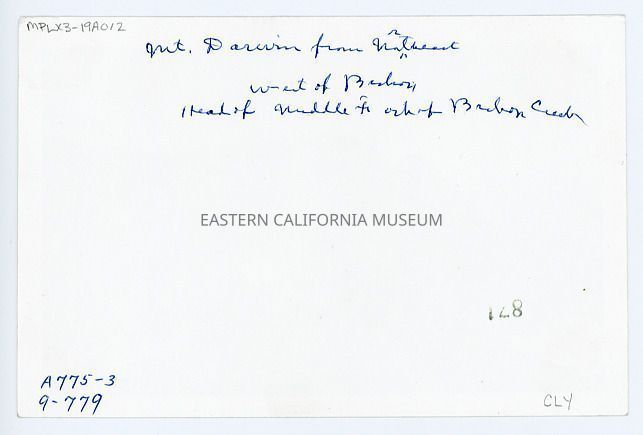 MPLX3-19A012
Mt. Darwin from Northeast
West of Bishop
Head of Middle Fork of Bishop Creek
EASTERN CALIFORNIA MUSEUM
128
A775-3
9-779
CLY